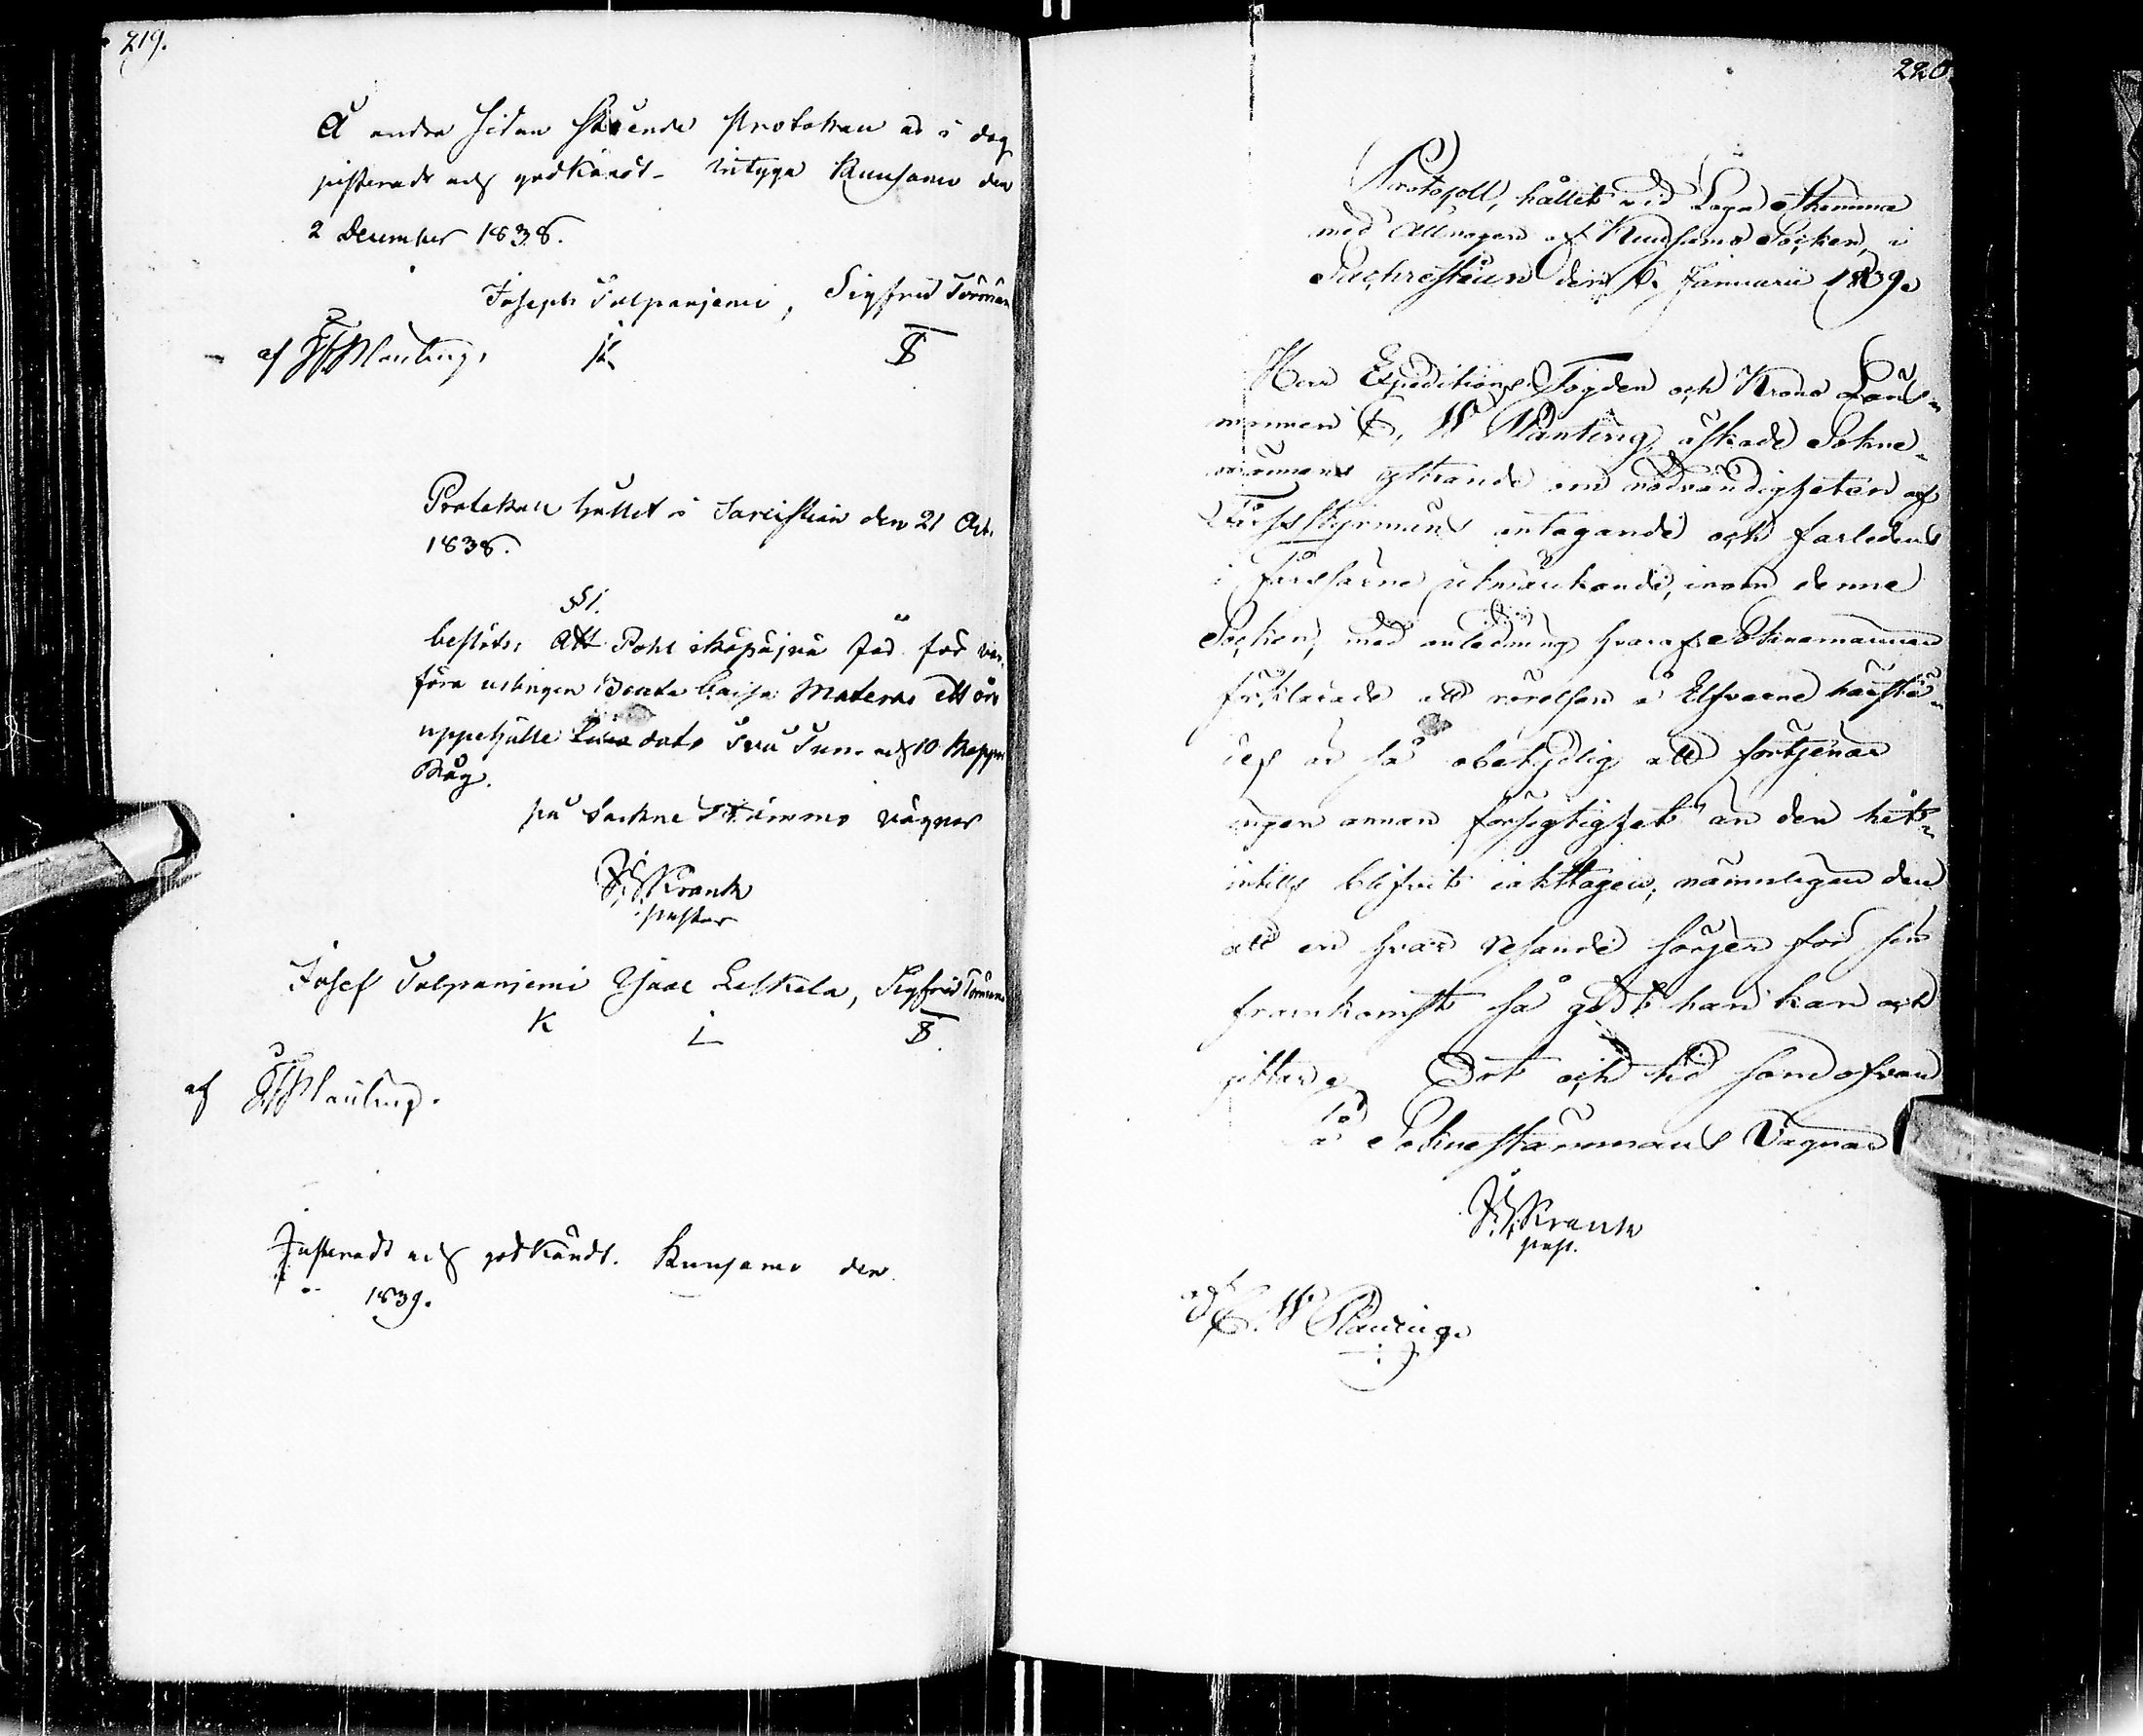 219.
Å andra sidan skrende Protokoll är i dag
justeradt och godkändt. intyga Kuusamo den
2 December 1838.
Joseph Talpanjemi, Sigfred Törmän
af Planting.
Protokoll hållet i Sarcistian den 21 Oct.
1838.
§ 1.
beslöts, Att Pohl
föra Beata Caisa Materas ett års
uppehälle dato två Tun. och 10 Kappar
Råg.
på Sockne Stämmo vägnar
Krank
pastor
Josef Talpanjemi Isaac Leskela, Sigfrid Törmänen
K L S
af Planting.
Justeradt och godkändt. Kuusamo den
1839.
220.
Protocoll, hållet vid Laga Stemma
med Allmogen af Kuusamo Socken, i
Sachrestian den 6. Januarii 1839.
Herr Expeditions Fogden och Krono Läns-
mannen E. W Planting, äskade Sokne-
männens yttrande om nödvändigheten af
Forsstyrmäns antagande och farledens
i forssarne utmärkande, inom denne
Socken, med anledning hvaraf Soknemännen
förklarade att rörelsen å Elfvarne härstä-
des är så obetydlig att förtjenar
ingen annan försigtighet än den hit-
intills blifvit iakttagen, nämnligen den
att en hvar resande sörjer för sin
framkomst så godt han kan och
gitter. Ort och tid som ofvan
På Soknestämmans Vägnar
Krank
past.
af E. W Planting.